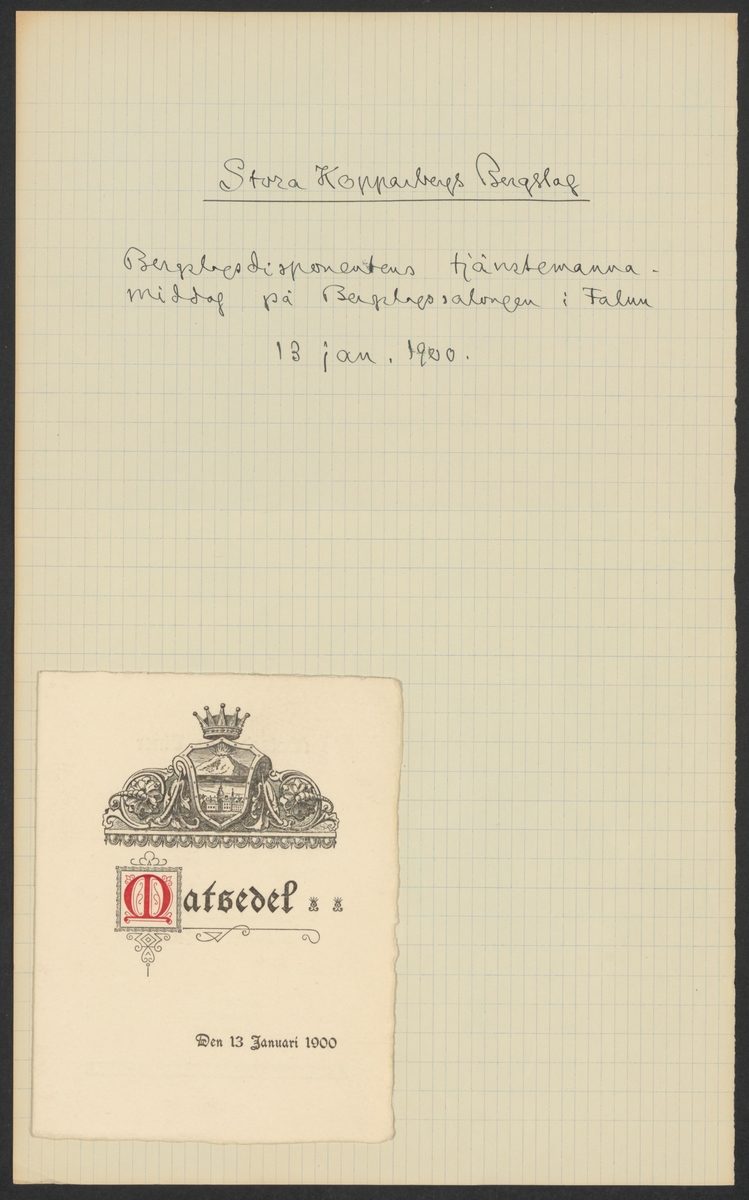 Stora Kopparbergs Bergslag
Bergslagsdisponentens tjänstemanna-
middag på Bergslagssalongen i Falun
13 jan. 1900.
Matsedel
Den 13 Januari 1900